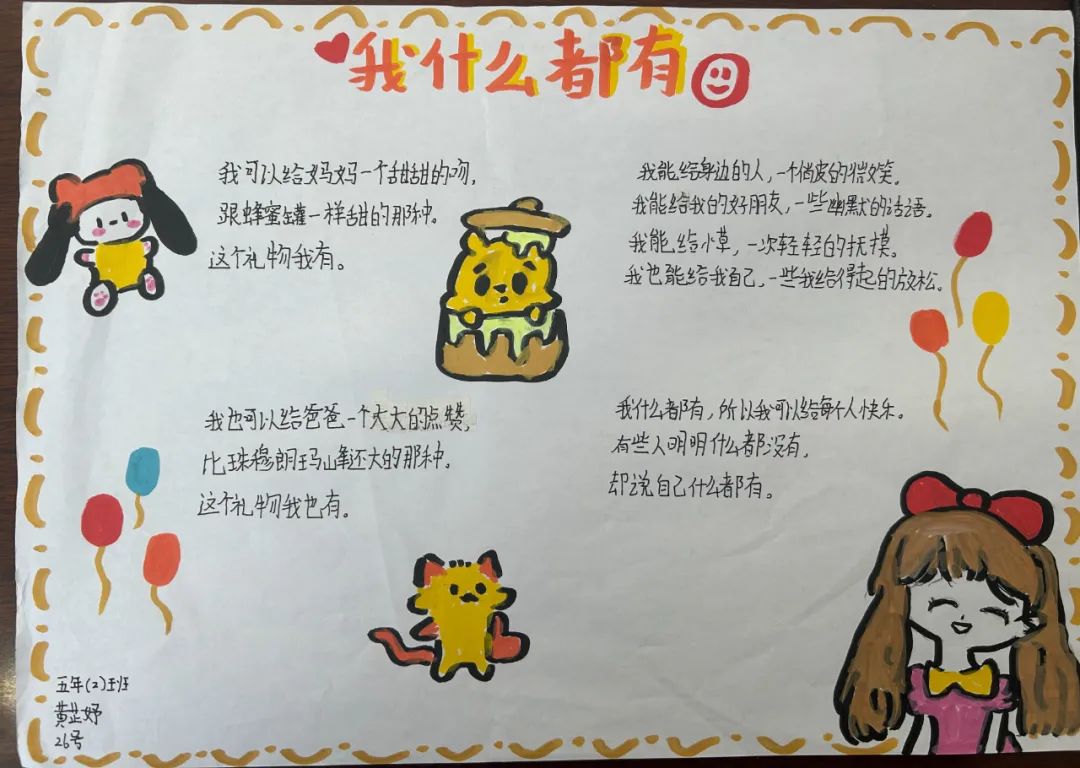 我什么都有
我可以给妈妈一个甜甜的吻，
跟蜂蜜罐一样甜的那种。
这个礼物我有。
我也可以给爸爸一个大大的点赞，
比珠穆朗玛山峰还大的那种。
这个礼物我也有。
我能给身边的人，一个俏皮的微笑。
我能给我的好朋友，一些幽默的话语。
我能给小草，一次轻轻的抚摸。
我也能给我自己，一些我给得起的放松。
我什么都有，所以我可以给每个人快乐。
有些人明明什么都没有，
却说自己什么都有。
五年(2)班
黄芷妤
26号